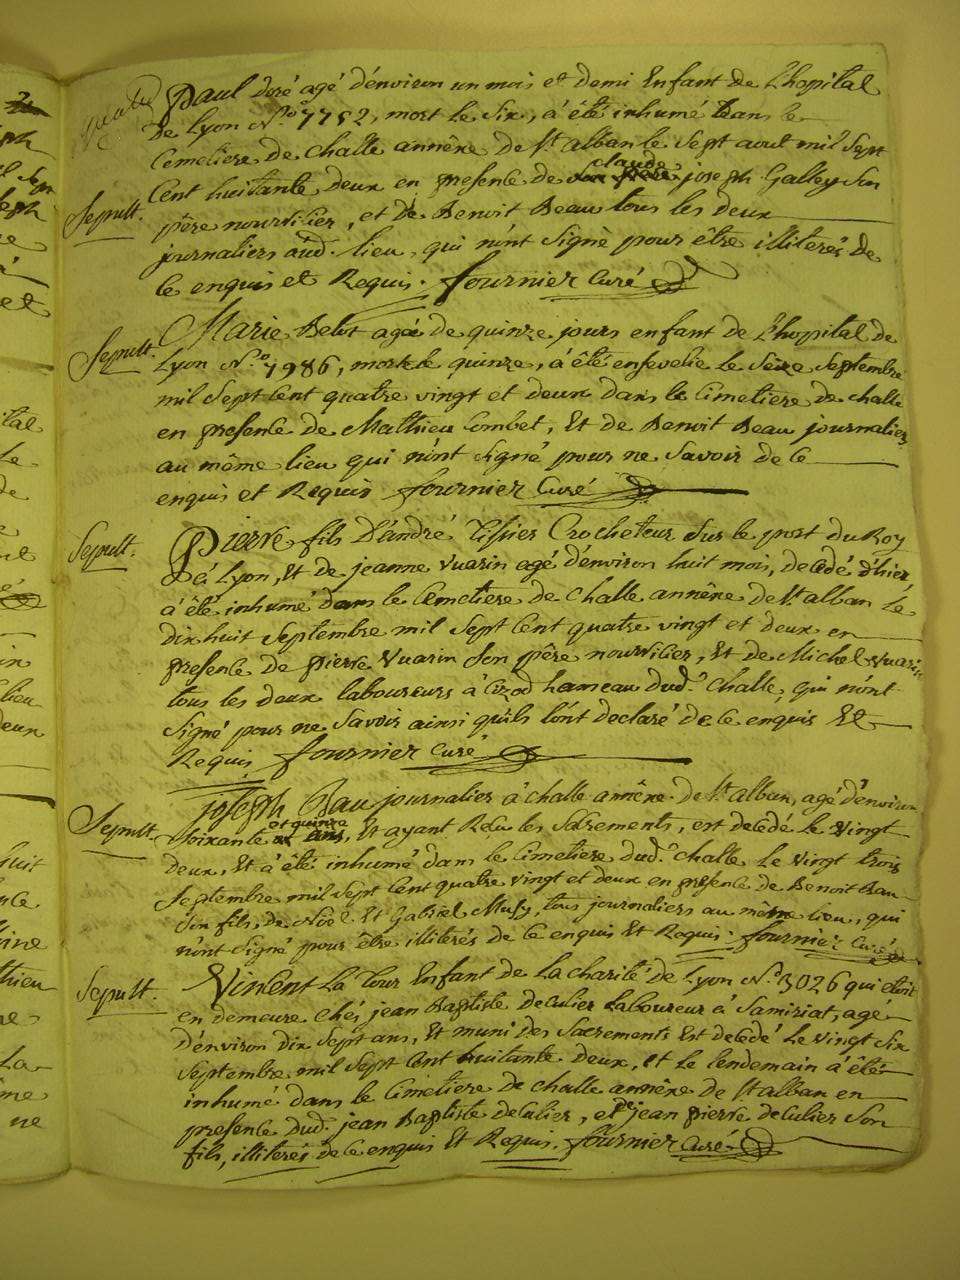 quatre
Paul doré agé d'environ un mois et demi Enfant de L'hopital
de Lyon N.º 7752, mort le six, à été inhumé dans le
Cemetiere de Challe annêxe de St alban le sept aout mil sept
claude
Cent huitante deux en presence de joseph Galley son
Sepult.
père nourricier, et de Benoit Beau tous les deux
journaliers aud. lieu, qui n'ont signé pour être illiterés de
ce enquis et Requis. fournier Curé
Marie Belot agée de quinze jours enfant de L'hopital de
Sepult.
Lyon N.º 7986, morte le quinze, à été ensevelie le seize septembre
mil sept cent quatre vingt et deux dans le Cimetiere de challe
en presence de Mathieu Combet, Et de Benoit Beau journaliers
au même lieu qui n'ont signé pour ne savoir de ce
enquis et Requis fournier Curé
Sepult.
Pierre fils D'andré Tissier Crocheteur sur le port du Roy
à Lyon, Et de jeanne Vuarin agé d'environ huit mois, decedé d'hier
à été inhumé dans le Cemetiere de Challe annêxe de St alban le
dix huit septembre mil sept cent quatre vingt et deux en
presence de pierre Vuarin son père nourricier, Et de Michel Vuarin
tous les deux laboureurs à Cizod hameau dud. Challe, qui n'ont
signé pour ne savoir ainsi qu'ils l'ont declaré de ce enquis Et
Requis fournier Curé
joseph Bau journalier à challe annêxe de St alban, agé d'environ
Sepult.
et quinze
soixante ans, Et ayant Reçu les sacrements, est decedé le vingt
deux, Et à été inhumé dans le Cimetiere dud. challe le vingt trois
septembre mil sept cent quatre vingt et deux en presence de Benoit Bau
son fils, de Noël Et Gabriel Musy, tous journaliers au même lieu, qui
n'ont signé pour être illiterés de ce enquis Et Requis. fournier Curé
Sepult.
Vincent La Tour Enfant de la charité de Lyon N.º 3026 qui etoit
en demeure chés jean Baptiste deculier Laboureur à Samiriat, agé
d'environ dix sept ans, Et muni des Sacrements Est decedé Le vingt six
septembre mil sept cent huitante deux, et le lendemain à été
inhumé dans le Cimetiere de challe annêxe de St alban en
presence dud. jean Baptiste deculier, et de jean pierre deculier son
fils, illiterés de ce enquis Et Requis. fournier Curé